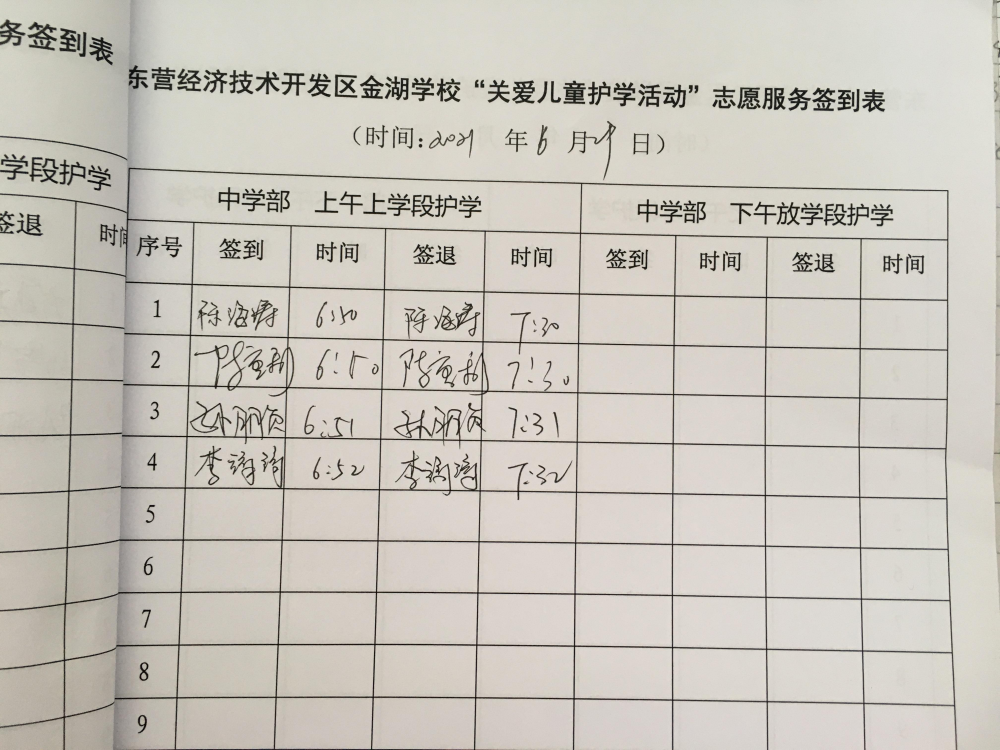 务签到表
学段护学
签退
时间
东营经济技术开发区金湖学校“关爱儿童护学活动”志愿服务签到表
（时间：2021 年 6 月 29 日）
中学部 上午上学段护学 中学部 下午放学段护学
序号 签到 时间 签退 时间 签到 时间 签退 时间
1 陈海涛 6:50 陈海涛 7:30
2 6:50 7:30
3 6:51 7:31
4 李 6:52 李 7:32
5
6
7
8
9